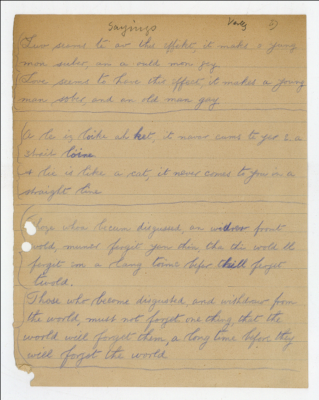 Sayings
Luv seems to av this effeket, it makes a young
man suber, an a oulld man gay
Love seems to have this effect, it makes a young
man sober, and an old man gay
A lie is like a ket, it never cums to you in a
straight line
A lie is like a cat, it never comes to you in a
straight line
Those who becum desgused, an widraw from
wold, must forget
forget em a long time befor forget
Those who become desgusted, and withdraw from
the world, must not forget one thing, that the
world will forget them, a long time before they
will forget the world